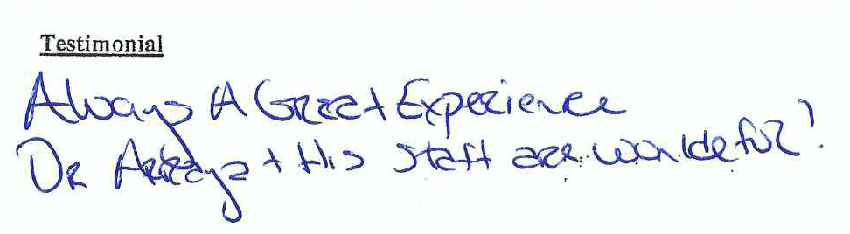 Testimonial
Always A Great Experience
Dr + His staff are wondeful!